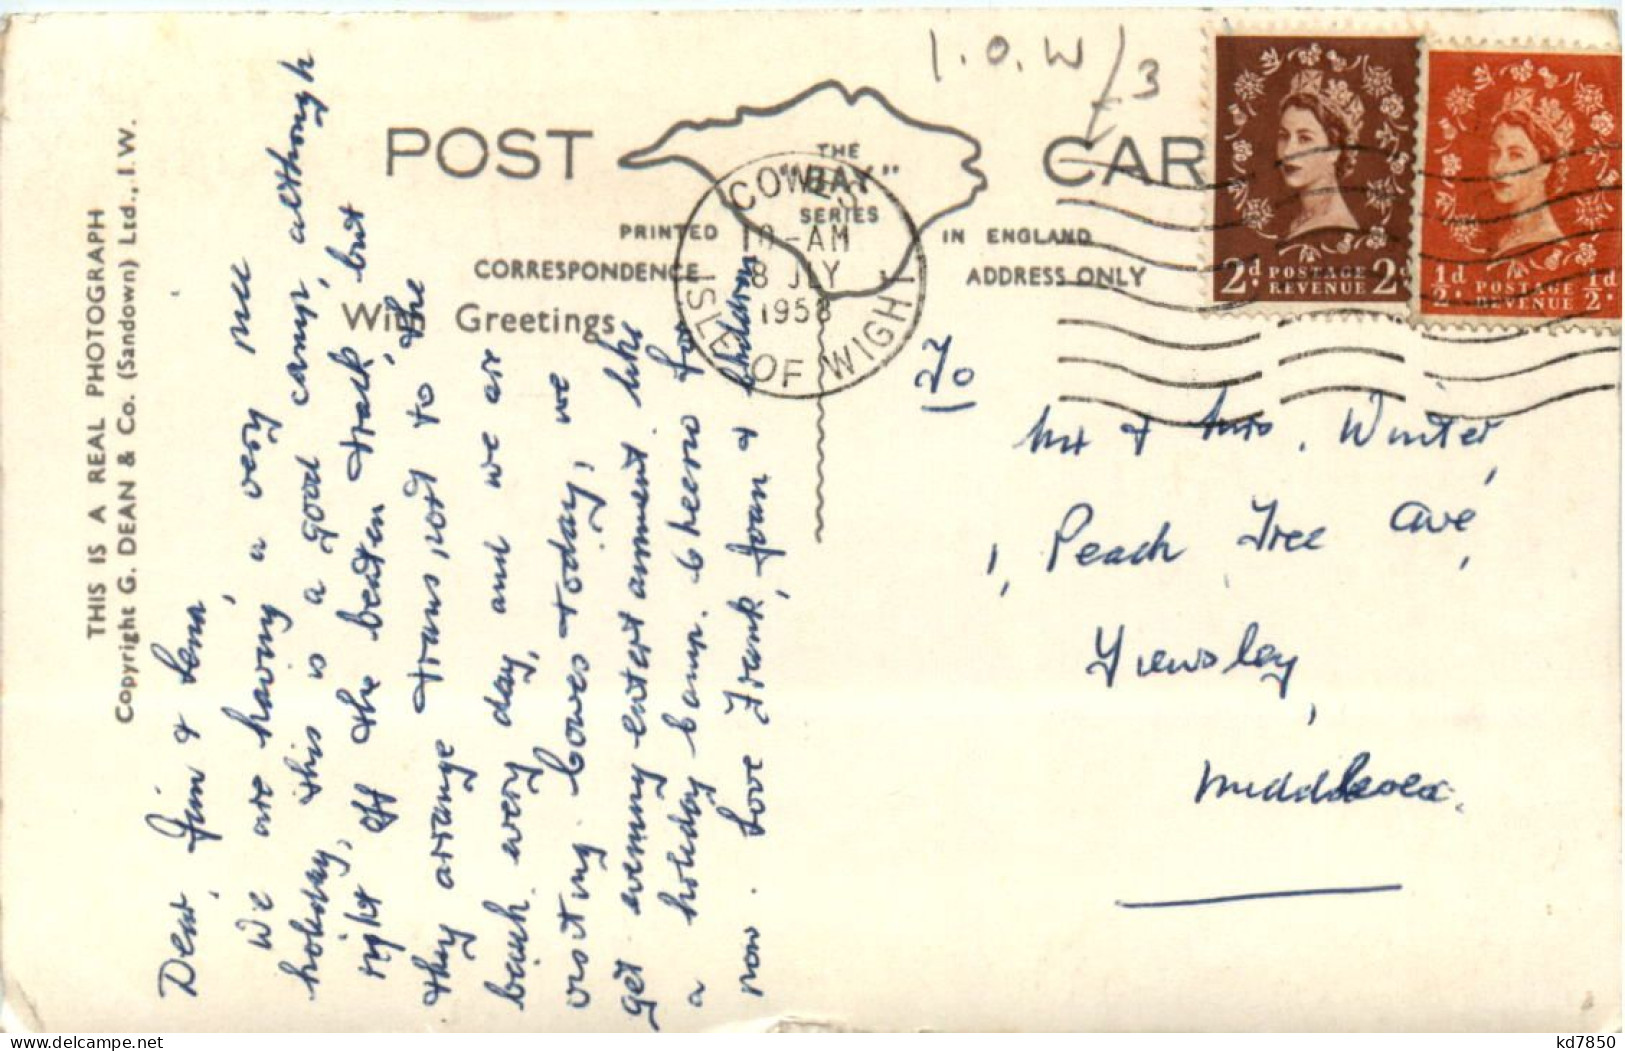 THIS IS A REAL PHOTOGRAPH
Copyright G. DEAN & Co. (Sandown) Ltd., I.W.
POST CAR
THE
"BAY"
SERIES
PRINTED IN ENGLAND
CORRESPONDENCE ADDRESS ONLY
With Greetings
I.O.W/3
COWES
10-AM
8 JLY
1958
ISLE OF WIGHT
2d. POSTAGE 2d
REVENUE
½d. POSTAGE ½d.
REVENUE
Dear Jim &
We are having a very nice
holiday, this is a good camp, although
right off the beaten track, but
they arrange transport to the
beach every day, and we are
visiting Cowes today, we
get evening entertainment like
a holiday camp. Cheerio for
now. Love Frank, Joan & children
To
Mr & Mrs. Winter,
, Peach Tree Ave,
Yiewsley,
Middlesex.
kd7850